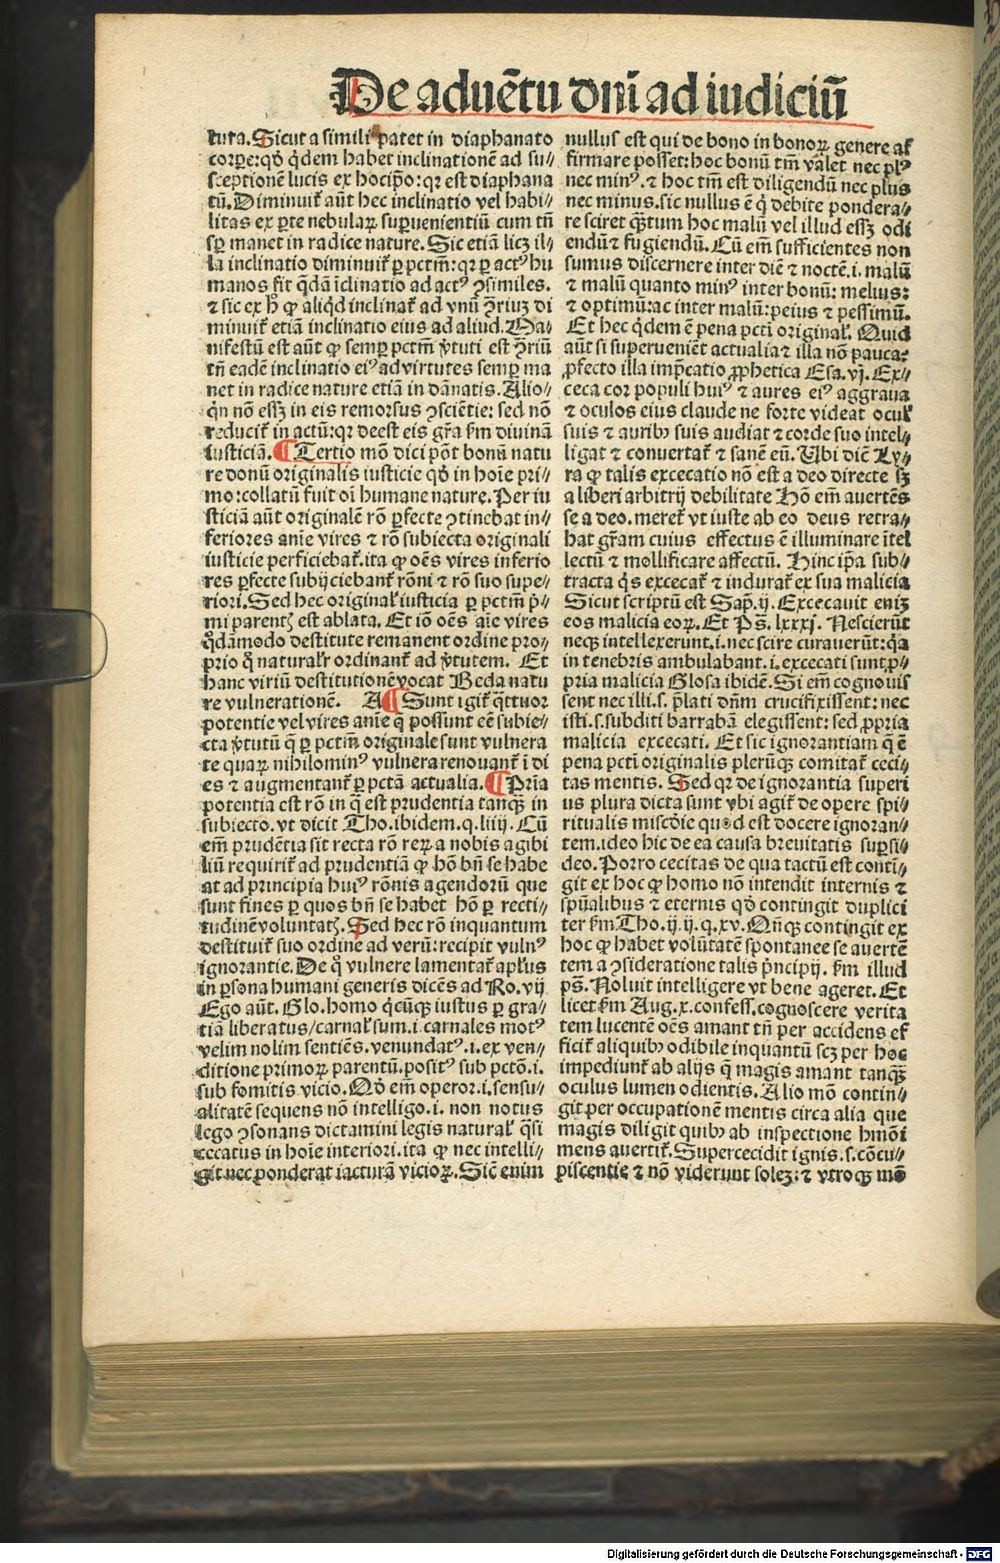 De aduētu dn̄i ad iudiciū
tura. Sicut a simili patet in diaphanato
corꝑe: qđ q̇dem habet inclinationē ad su⸗
sceptionē lucis ex hoc ip̄o: qꝛ est diaphana
tū. Diminuit᷑ aūt hec inclinatio vel habi⸗
litas ex ꝑte nebulaꝝ suꝑuenientiū cum tn̄
sꝑ manet in radice nature. Sic etiā licꝫ il⸗
la inclinatio diminuit᷑ ꝑ pctm̄: qꝛ ꝑ actꝰ hu
manos fit q̄dā īclinatio ad actꝰ ↄsimiles.
⁊ sic ex hͦ ꝙ aliqͥd inclinat᷑ ad vnū ↄ̄riuꝫ di
minuit᷑ etiā inclinatio eius ad aliud. Ma⸗
nifestū est aūt ꝙ semꝑ pctm̄ v̓tuti est ↄ̄riū
tn̄ eadē inclinatio eiꝰ ad virtutes semꝑ ma
net in radice nature etiā in dānatis. Alio⸗
qn̄ nō essꝫ in eis remorsus ↄsciētie: sed nō
reducit᷑ in actū: qꝛ deest eis gr̄a ẜm diuinā
iusticiā. ¶ Tertio mō dici pōt bonū natu
re donū originalis iusticie qđ in hoīe pri⸗
mo: collatū fuit oī humane nature. Per iu
sticiā aūt originalē rō ꝑfecte ↄtinebat in⸗
feriores anīe vires ⁊ rō subiecta originali
iusticie perficiebat᷑. ita ꝙ oēs vires inferio
res ꝑfecte subijciebant᷑ rōni ⁊ rō suo supe⸗
riori. Sed hec originaƚ iusticia ꝑ pctm̄ p̓⸗
mi parentꝭ est ablata. Et iō oēs aīe vires
q̄dāmodo destitute remanent ordine pro⸗
prio qͦ naturaƚr ordinant᷑ ad v̓tutem. Et
hanc viriū destitutionē vocat Beda natu
re vulnerationē. A ¶ Sunt igit᷑ q̄ttuor
potentie vel vires anīe q̄ possunt eē subie⸗
cta v̓tutū q̄ ꝑ pctm̄ originale sunt vulnera
te quaꝝ nihilominꝰ vulnera renouant᷑ ī di
es ⁊ augmentant᷑ ꝑ pctā actualia. ¶ Prīa
potentia est rō in q̄ est prudentia tanqꝫ̄ in
subiecto. vt dicit Tho. ibidem. q. liiij. Cū
em̄ prudētia sit recta rō reꝝ a nobis agibi
liū requirit᷑ ad prudentiā ꝙ hō bn̄ se habe
at ad principia huiꝰ rōnis agendorū que
sunt fines ꝑ quos bn̄ se habet hō ꝑ recti⸗
tudinē voluntatꝭ. Sed hec rō inquantum
destituit᷑ suo ordine ad verū: recipit vulnꝰ
ignorantie. De qͦ vulnere lamentat᷑ apƚus
in ꝑsona humani generis dicēs ad Ro. vij
Ego aūt. Glo. homo q̇cūqꝫ iustus ꝑ gra⸗
tiā liberatus/ carnaƚ sum. i. carnales motꝰ
velim nolim sentiēs. venundatꝰ. i. ex ven⸗
ditione primoꝝ parentū. positꝰ sub pctō. i.
sub fomitis vicio. Qđ em̄ operor. i. sensu⸗
alitatē sequens nō intelligo. i. non notus
lego ↄsonans dictamini legis naturaƚ q̄si
cecatus in hoīe interiori. ita ꝙ nec intelli⸗
git nec ponderat iacturā vicioꝝ. Sic enim
nullus est qui de bono in bonoꝝ genere af
firmare posset: hoc bonū tm̄ valet nec plꝰ
nec minꝰ. ⁊ hoc tm̄ est diligendū nec plus
nec minus. sic nullus ē q̇ debite pondera⸗
re sciret qꝫ̄tum hoc malū vel illud essꝫ odi
endū ⁊ fugiendū. Cū em̄ sufficientes non
sumus discernere inter diē ⁊ noctē. i. malū
⁊ malū quanto minꝰ inter bonū: melius:
⁊ optimū: ac inter malū: peius ⁊ pessimū.
Et hec q̇dem ē pena pcti originaƚ. Quid
aūt si superueniēt actualia ⁊ illa nō pauca?
ꝓfecto illa imp̄catio ꝓphetica Esa. vj. Ex⸗
ceca cor populi huiꝰ ⁊ aures eiꝰ aggraua
⁊ oculos eius claude ne forte videat ocuƚ
suis ⁊ auribꝫ suis audiat ⁊ corde suo intel⸗
ligat ⁊ conuertat᷑ ⁊ sanē eū. Ubi diēᷓ Ly⸗
ra ꝙ talis excecatio nō est a deo directe sꝫ
a liberi arbitrij debilitate Hō em̄ auertēs
se a deo. meret᷑ vt iuste ab eo deus retra⸗
hat gr̄am cuius effectus ē illuminare ītel
lectū ⁊ mollificare affectū. Hinc ip̄a sub⸗
tracta q̇s excecat᷑ ⁊ indurat᷑ ex sua malicia
Sicut scriptū est Sap̄. ij. Excecauit eniꝫ
eos malicia eoꝝ. Et Ps̄. lxxxj. Nescierūt
neqꝫ intellexerunt. i. nec scire curauerūt: q̇a
in tenebris ambulabant. i. excecati sunt. p̱⸗
pria malicia Glosa ibidē. Si em̄ cognouis
sent nec illi. s. p̄lati dn̄m crucifixissent: nec
isti. s. subditi barrabā elegissent: sed ꝓpria
malicia excecati. Et sic ignorantiam q̄ ē
pena pcti originalis plerūqꝫ comitat᷑ ceci⸗
tas mentis. Sed qꝛ de ignorantia superi
us plura dicta sunt vbi agit᷑ de opere spi⸗
ritualis miscđie quod est docere ignoran⸗
tem. ideo hic de ea causa breuitatis suꝑsi⸗
deo. Porro cecitas de qua tactū est contī⸗
git ex hoc ꝙ homo nō intendit internis ⁊
spūalibus ⁊ eternis qđ contingit duplici
ter ẜm Tho. ij. ij. q. xv. Qn̄qꝫ contingit ex
hoc ꝙ habet volūtatē spontanee se auertē
tem a ↄsideratione talis p̓ncipij. ẜm illud
ps̄. Noluit intelligere vt bene ageret. Et
licet ẜm Aug. x. confess. cognoscere verita
tem lucentē oēs amant tn̄ per accidens ef
ficit᷑ aliquibꝫ odibile inquantū scꝫ per hoc
impediunt᷑ ab alijs q̄ magis amant tanqꝫ̄
oculus lumen odientis. Alio mō contin⸗
git per occupationē mentis circa alia que
magis diligit quibꝫ ab inspectione hmōi
mens auertit᷑. Supercecidit ignis. s. cōcu⸗
piscentie ⁊ nō viderunt soleꝫ: ⁊ vtroqꝫ mō
Digitalisierung gefördert durch die Deutsche Forschungsgemeinschaft - DFG